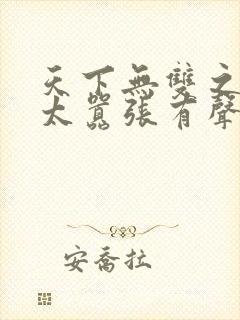 天下無雙之
太囂張有聲
安喬拉